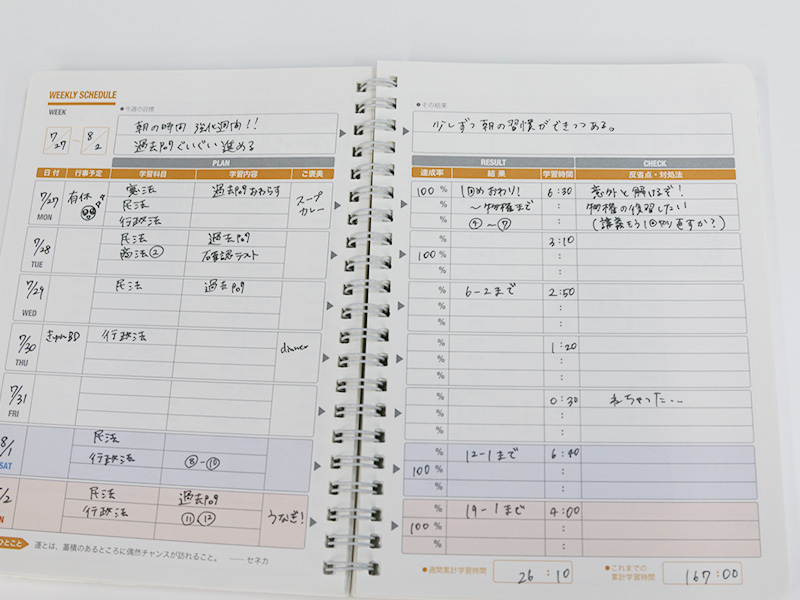 WEEKLY SCHEDULE
WEEK
7/27 ~ 8/2
●今週の目標
朝の時間 強化週間!!
過去問ぐいぐい進める
PLAN
日付 行事予定 学習科目 学習内容 ご褒美
7/27 MON 有休 憲法 過去問おわらす スープカレー
民法
行政法
7/28 TUE 民法 過去問
商法② 確認テスト
7/29 WED 民法 過去問
7/30 THU BD 行政法 dinner
7/31 FRI
8/1 SAT 民法
行政法 ⑧-⑩
民法 過去問 うなぎ!
行政法 ⑪,⑫
ひとこと 運とは、蓄積のあるところに偶然チャンスが訪れること。 ——セネカ
●その結果
少しずつ朝の習慣ができつつある。
RESULT CHECK
達成率 結果 学習時間 反省点・対処法
100 % 1回めおわり! 6:30 意外と解けるぞ!
% ~物権まで : 物権の復習したい
% ④~⑦ : (講義もう1回やり直すか?)
% 3:10
100 % :
% :
% 6-2まで 2:50
% :
% :
% 1:20
% :
% :
% 0:30 ねちゃった...
% :
% :
% 12-1まで 6:40
100 % :
% :
% 19-1まで 4:00
100 % :
% :
●週間累計学習時間 26:10
●これまでの累計学習時間 167:00